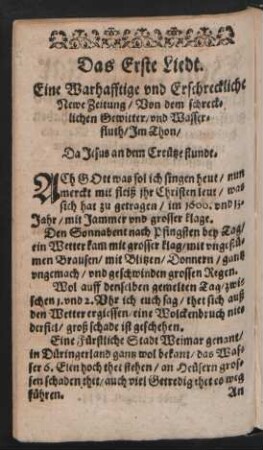 Das Erste Liedt.
Eine Warhafftige vnd Erschreckliche
Newe Zeitung / Von dem schreck-
lichen Gewitter / vnd Wasser-
fluth / Im Thon /
Da Jesus an dem Creütze stundt.
ACh GOtt was sol ich singen heut / nun
merckt mit fleiß jhr Christen leut / was
sich hat zu getragen / im 1600. vnd 13.
Jahr / mit Jammer vnd grosser klage.
Den Sonnabent nach Pfingsten bey Tag /
ein Wetter kam mit grosser klag / mit vngestü-
men Brausen / mit Blitzen / Donnern / gantz
vngemach / vnd geschwinden grossen Regen.
Wol auff denselben gemelten Tag / zwi-
schen 1. vnd 2. Vhr ich euch sag / thet sich auß
den Wetter ergiessen / eine Wolckenbruch nie-
derfiel / groß schade ist geschehen.
Eine Fürstliche Stadt Weimar genant /
in Düringerland gantz wol bekant / das Was-
ser 6. Elen hoch thet stehen / an Heüsern gros-
sen schaden thet / auch viel Getredig thet es weg
führen.
An